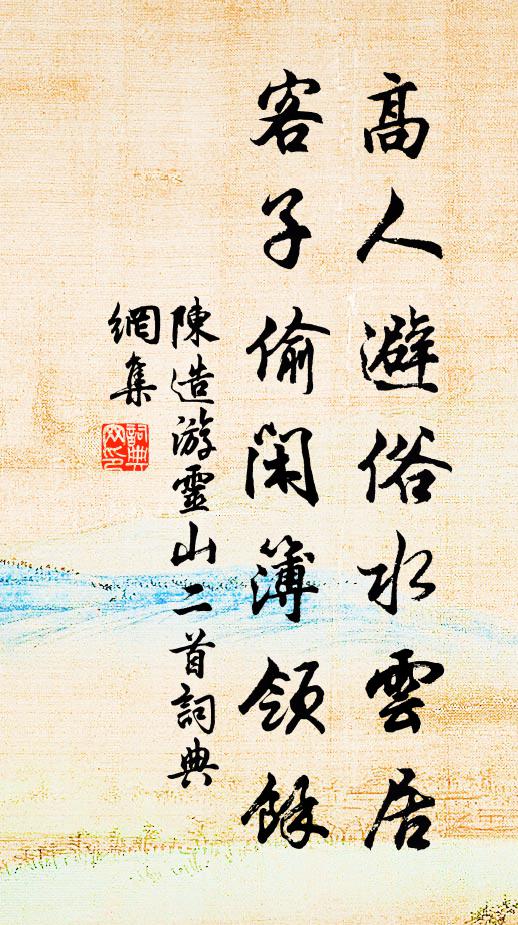 高人避俗水雲居
客子偷閑簿領餘
陳造游靈山二首詞典
網集
詞典